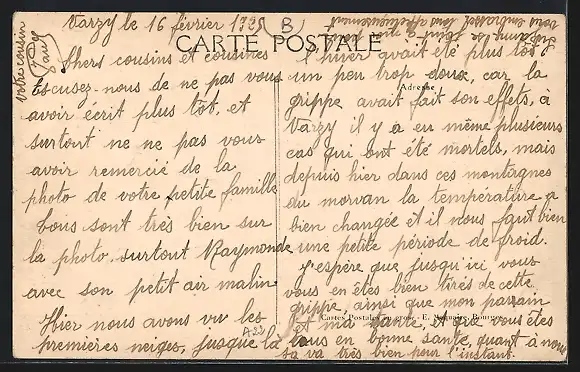 Varzy le 16 février 192
B
CARTE POSTALE
Chers cousins et cousines
Escusez-nous de ne pas vous
avoir écrit plus tôt, et
surtout ne ne pas vous
avoir remercié de la
photo de votre petite famille
tous sont très bien sur
la photo, surtout Raymonde
avec son petit air malin
Hier nous avons vu les
premières neiges, jusque là
A22
l'hiver avait été plus tôt
un peu trop doux, car la
Adresse
grippe avait fait son effets, à
Varzy il y a eu même plusieurs
cas qui ont été mortels, mais
depuis hier dans ces montagnes
du morvan la température a
bien changée et il nous faut bien
une petite période de froid.
J'espère que jusqu'ici, vous
vous en êtes bien tirés de cette
grippe, ainsi que mon parrain
Cartes Postales en gros - E. Bourges
et ma tante, et que vous êtes
tous en bonne santé, quant à nous
sa va très bien pour l'instant.
vous embrasser tous affectueusement
votre cousin